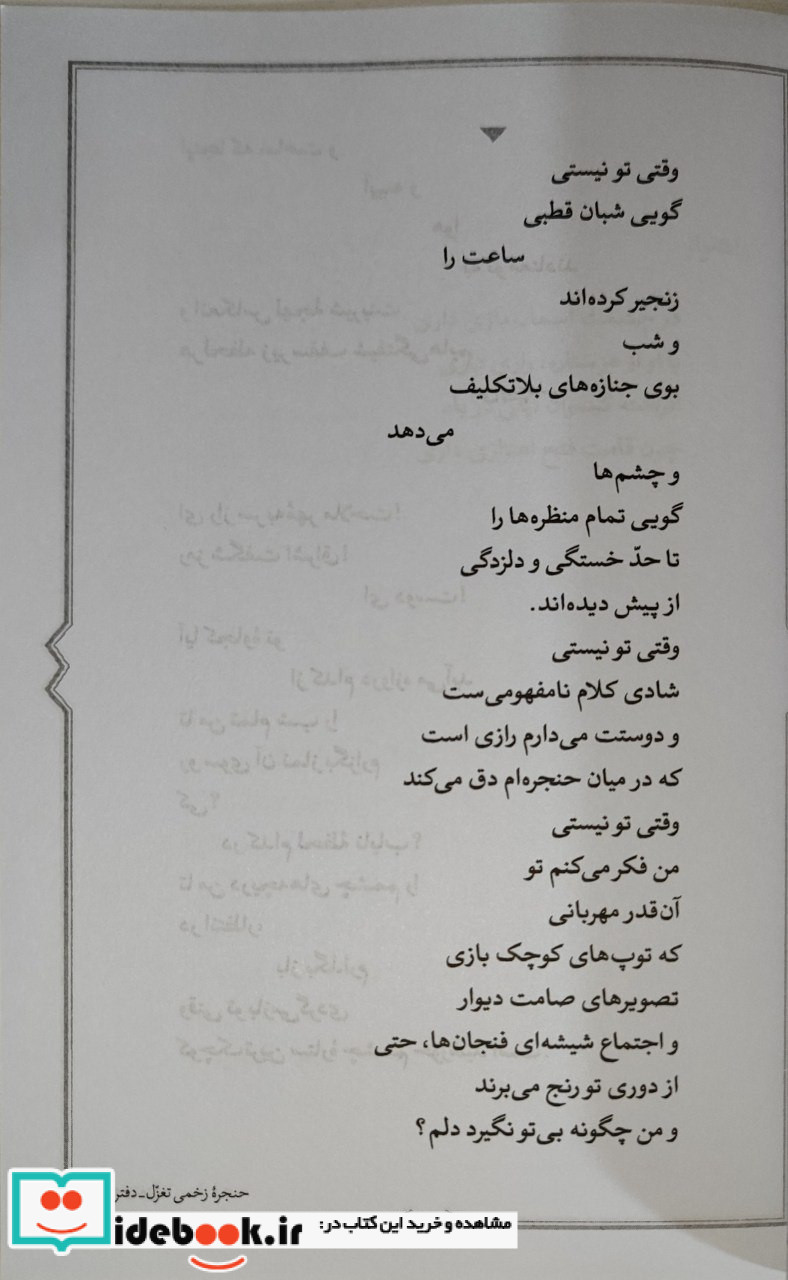 وقتی تو نیستی
گویی شبان قطبی
ساعت را
زنجیر کرده‌اند
و شب
بوی جنازه‌های بلاتکلیف
می‌دهد
و چشم‌ها
گویی تمام منظره‌ها را
تا حدّ خستگی و دلزدگی
از پیش دیده‌اند.
وقتی تو نیستی
شادی کلام نامفهومی‌ست
و دوستت می‌دارم رازی است
که در میان حنجره‌ام دق می‌کند
وقتی تو نیستی
من فکر می‌کنم تو
آن‌قدر مهربانی
که توپ‌های کوچک بازی
تصویرهای صامت دیوار
و اجتماع شیشه‌ای فنجان‌ها، حتی
از دوری تو رنج می‌برند
و من چگونه بی‌تو نگیرد دلم؟
حنجرهٔ زخمی تغزّل_دفتر
مشاهده و خرید این کتاب در:
idebook.ir